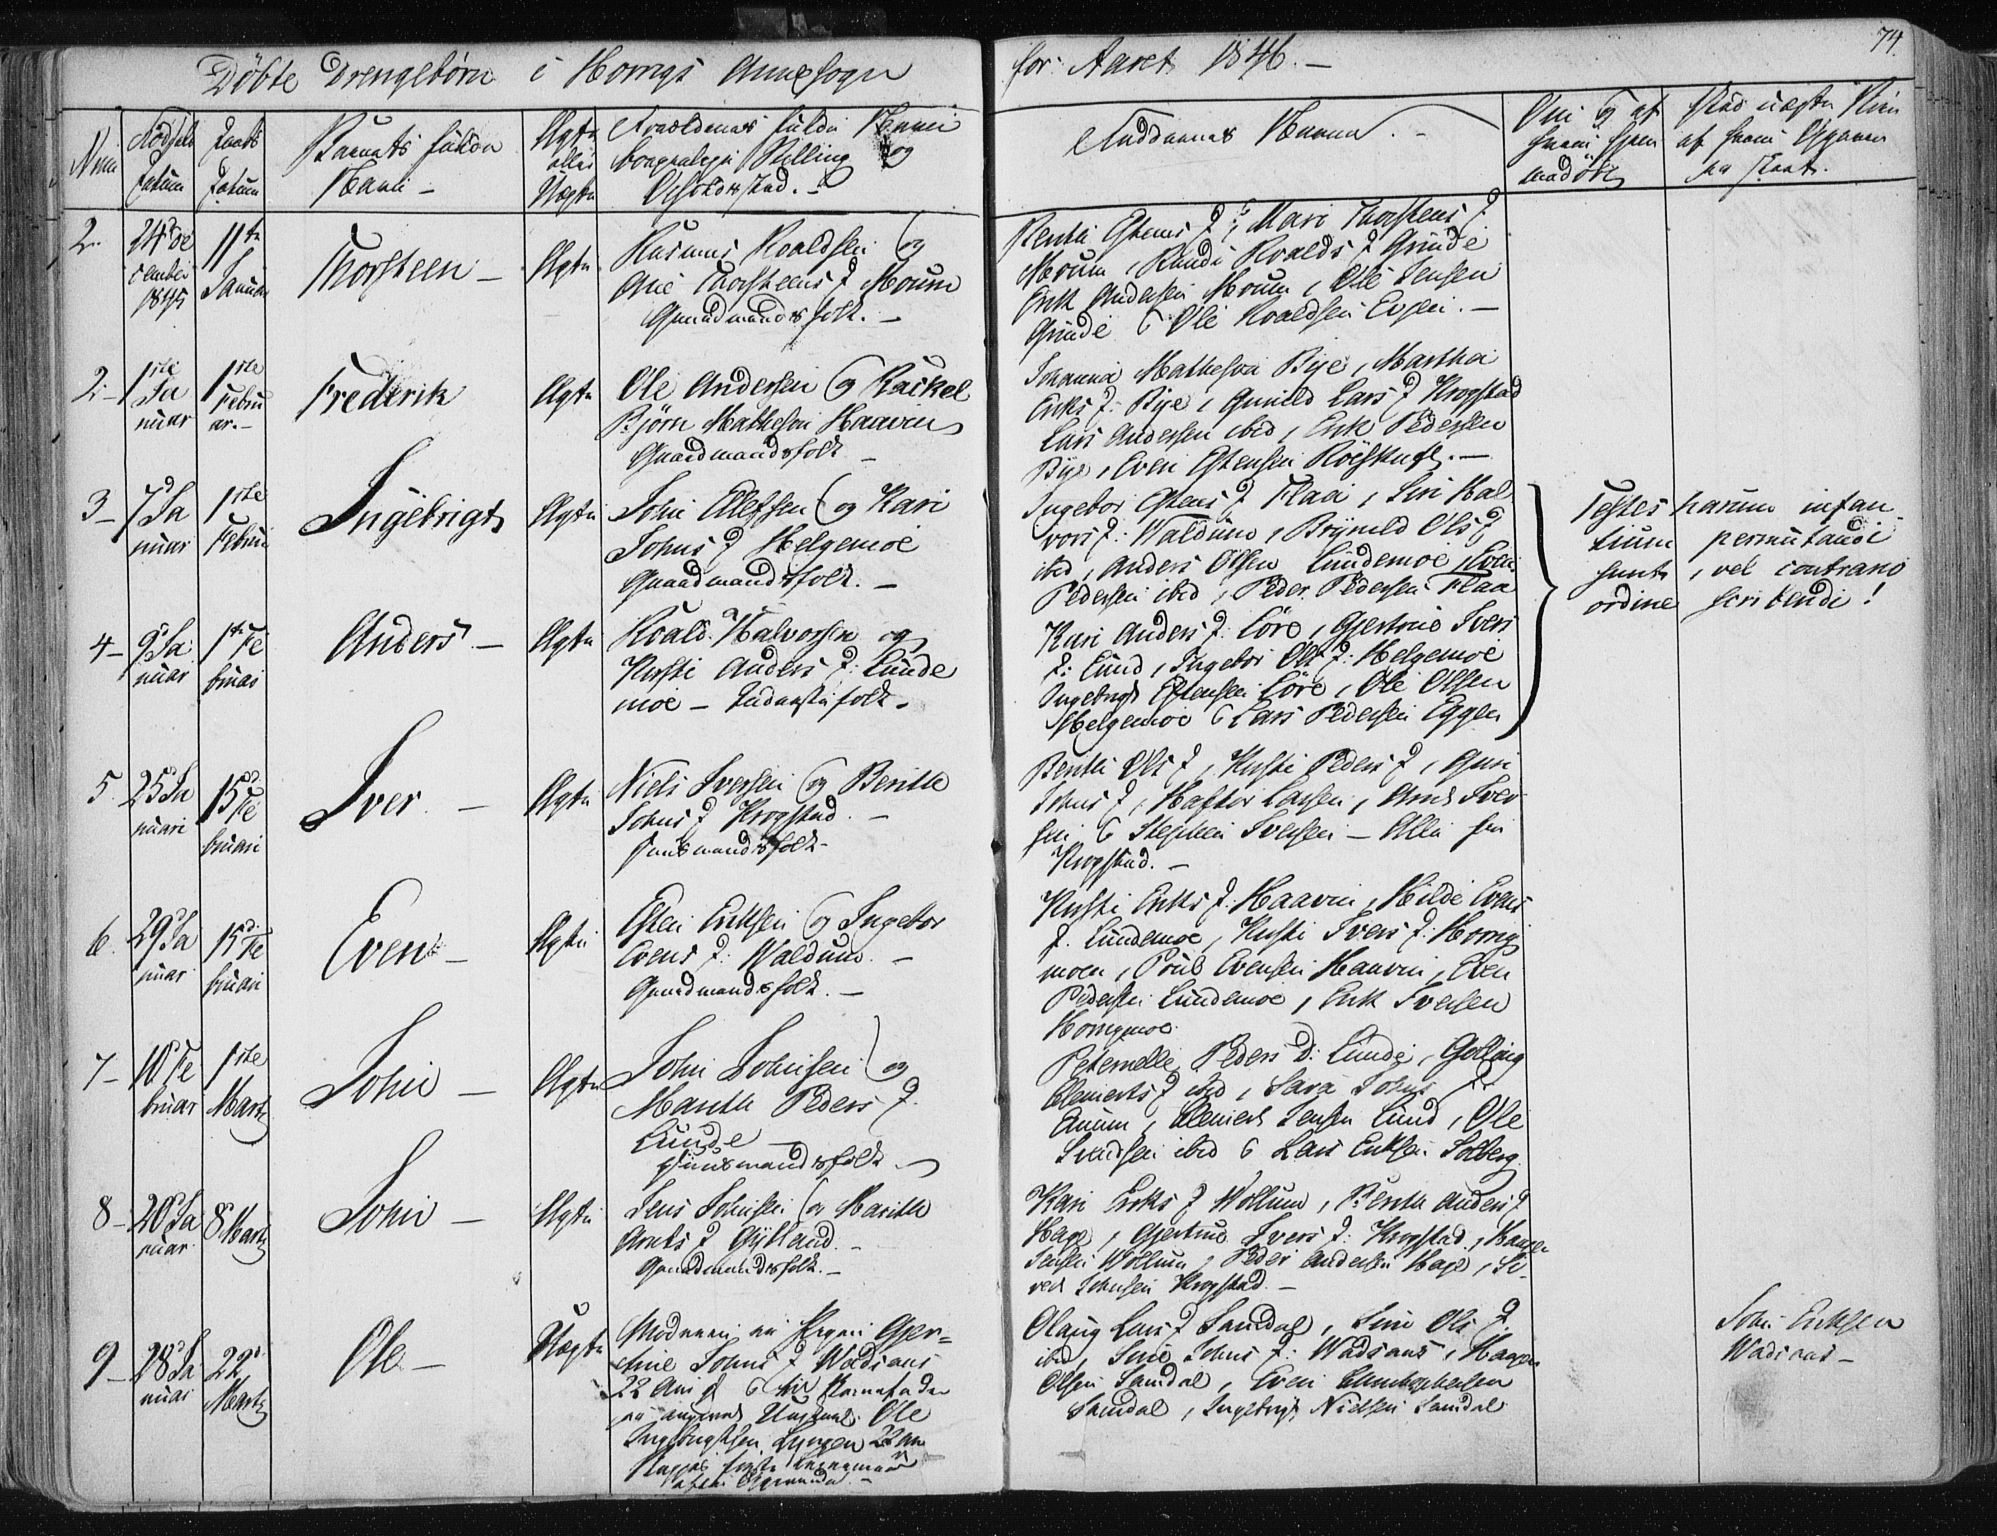 Döbte Drengebörn i Horrigs Annexsogn for Aaret 1846. –
74.
Num
Födsels Datum
Daabs Datum
Barnets fulde Navn –
Ægte eller Uægte
Forældrenes fulde Navne
borgerlige Stilling og
Opholdssted. –
Faddernes Navne. –
Om og af hvem hjemmedöbt
2.
24de December 1845
11te Januar
Thorsteen –
Ægte
Rasmus Roaldsen og
Ane Thorsteens D Moum
Gaardmandsfolk. –
Berith Estens D, Mari Thorsteens D
Moum, Randi Roalds D Grinde
Erik Andersen Moum, Ole Jensen
Grinde & Ole Roaldsen Evjen. –
2 –
1ste Januar
1ste Februar. –
Frederik
Ægte
Ole Andersen og Rackel
Björn Mathesen Haaven
Gaardmandsfolk –
Johanna Mathesen Bye, Martha
Eriks D: Bye, Gunild Lars D Krogstad
Lars Andersen ibid, Erik Pedersen
Bye, Even Estensen Röskaft. –
3 –
7d Januar
1ste Februar
Ingebrigt
Ægte
John Ellefsen og Kari
Johns D Helgemoe
Gaardmandsfolk. –
Ingebor Estens D Flaa, Siri Hal
vors D: Waldum, Brynild Ols D
ibid, Anders Olsen Lundemoe, Even
Pedersen ibid, Peder Pedersen Flaa
Testes harum infan
tium permutandi
sunt, vel contrario
ordine scribendi!
4 –
9d Januar
1ste Februar
Anders –
Ægte
Roald Halvorsen og
Kirsti Anders D: Lunde
moe – Inderstefolk.
Kari Anders D: Löre, Gjertrud Ivers
D: Lund, Ingebor Ols D: Helgemoe
Ingebrigt Estensen Löre, Ole Olsen
Helgemoe & Lars Pedersen Eggen
5.
25d Januari
15d Februari
Iver. –
Ægte
Niels Iversen og Berith
Johns D Krogstad. –
Huusmandsfolk –
Berith Ols D, Kirsti Peders D, Guri
Johns D, Haftor Larsen, Arnt Iver
sen & Stephen Iversen – Alle fra
Krogstad. –
6.
29d Januar
15d Februari
Even –
Ægte
Esten Eriksen og Ingebor
Evens D: Waldum. –
Gaardmandsfolk. –
Kirsti Eriks D: Haaven, Hilde Evens
D. Lundemoe, Kirsti Ivers D: Horrig
moen, Poul Evensen Haaven, Even
Pedersen Lundemoe, Erik Iversen
Horrigmoe.
7 –
10d Februar
1ste Marts
John –
Ægte
John Johnsen og
Marith Peders D.
Lunde –
Huusmandsfolk –
Peternelle Peders D: Lunde,
Clements D ibid, Sara Johns D:
Clement Jensen Lund, Ole
ibid & Lars Eriksen Solberg.
8 –
20d Januar
8d Marts
John –
Ægte
Jens Johnsen og Marith
Arnts D Gylland. –
Gaardmandsfolk. –
Kari Eriks D Wollum, Berith Anders D
Hage, Gjertrud Ivers D: Krogstad, Haagen
Jensen Wollum, Peder Andersen Hage, Si
vert Johnsen Krogstad. –
9 –
28d Januar
22d Marts
Ole –
Uægte
Moderen er Pigen Gjer=
trine Johns D Wadsaas
22 Aar & til Barnefader
er angivet Ungkarl Ole
Ingebrigtsen Lyngen 22 Aar
Olaug Lars D Samdal, Sine Ols D.
ibid, Sine Johns D: Wadsaas, Haagen
Olsen Samdal, Even Christophersen
Samdal, Ingebrigt Nielsen Samdal
John Eriksen
Wadsaas –